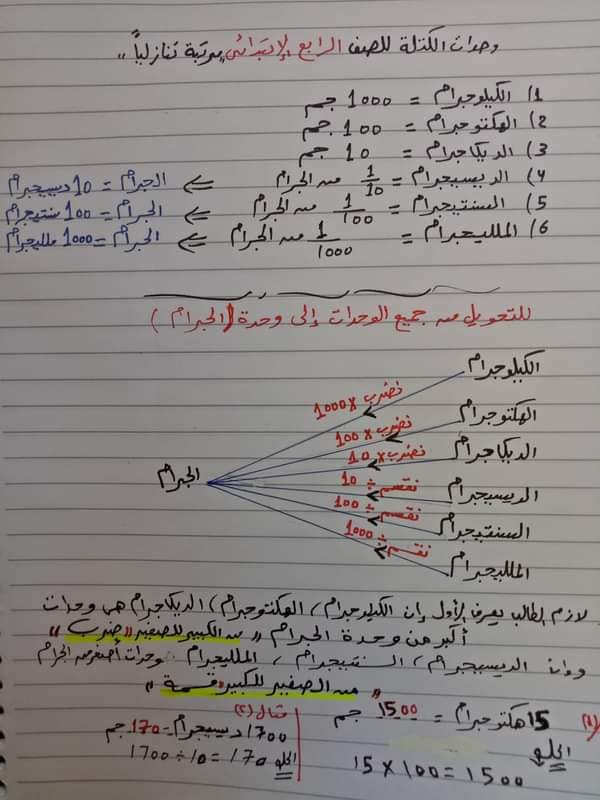 وحدات الكتلة للصف الرابع الإبتدائى مرتبة تنازلياً ,,
1) الكيلوجرام = 1000 جم
2) الهكتوجرام = 100 جم
3) الديكاجرام = 10 جم
4) الديسيجرام = 1/10 من الجرام ⇐ الجرام = 10 ديسيجرام
5) السنتيجرام = 1/100 من الجرام ⇐ الجرام = 100 سنتيجرام
6) الملليجرام = 1/1000 من الجرام ⇐ الجرام = 1000 ملليجرام
للتحويل من جميع الوحدات إلى وحدة (الجرام)
الكيلوجرام نضرب × 1000
الهكتوجرام نضرب × 100
الديكاجرام نضرب × 10
الجرام
الديسيجرام نقسم ÷ 10
السنتيجرام نقسم ÷ 100
الملليجرام نقسم ÷ 1000
لازم الطالب يعرف الأول إن الكيلوجرام, الهكتوجرام, الديكاجرام هى وحدات
أكبر من وحدة الجرام ,, من الكبير للصغير "ضرب"
وان الديسيجرام, السنتيجرام, الملليجرام وحدات أصغر من الجرام
" من الصغير للكبير "قسمة "
(1) 15 هكتوجرام = 1500 جم
الحل
15 × 100 = 1500
مثال (2)
1700 ديسيجرام = 170 جم
الحل 1700 ÷ 10 = 170